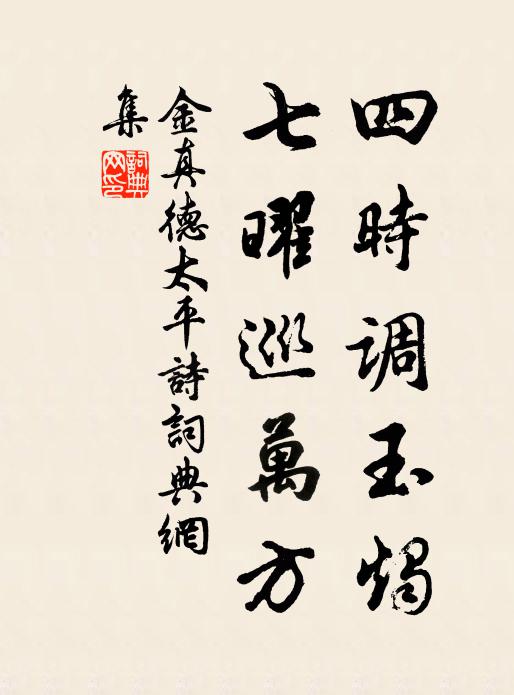 四時調玉燭
七曜巡萬方
金真德太平詩詞典網
集
詞典網印